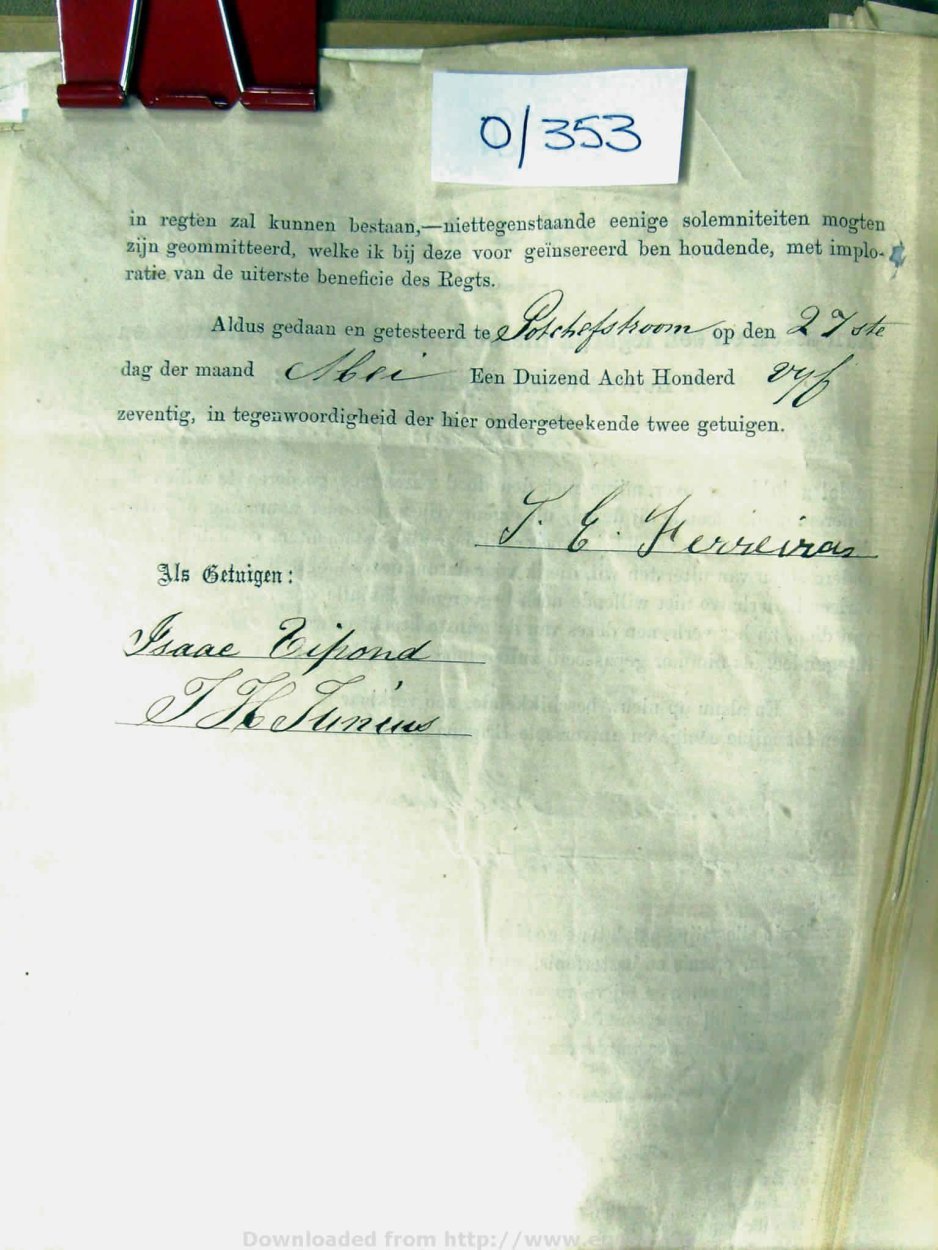 0/353
in regten zal kunnen bestaan,—niettegenstaande eenige solemniteiten mogten
zijn geommitteerd, welke ik bij deze voor geïnsereerd ben houdende, met implo-
ratie van de uiterste beneficie des Regts.
Aldus gedaan en getesteerd te Potchefstroom op den 27ste
dag der maand Mei Een Duizend Acht Honderd vyf
zeventig, in tegenwoordigheid der hier ondergeteekende twee getuigen.
Ferreira
Als Getuigen:
Isaac
J H Junius
Downloaded from http://www.